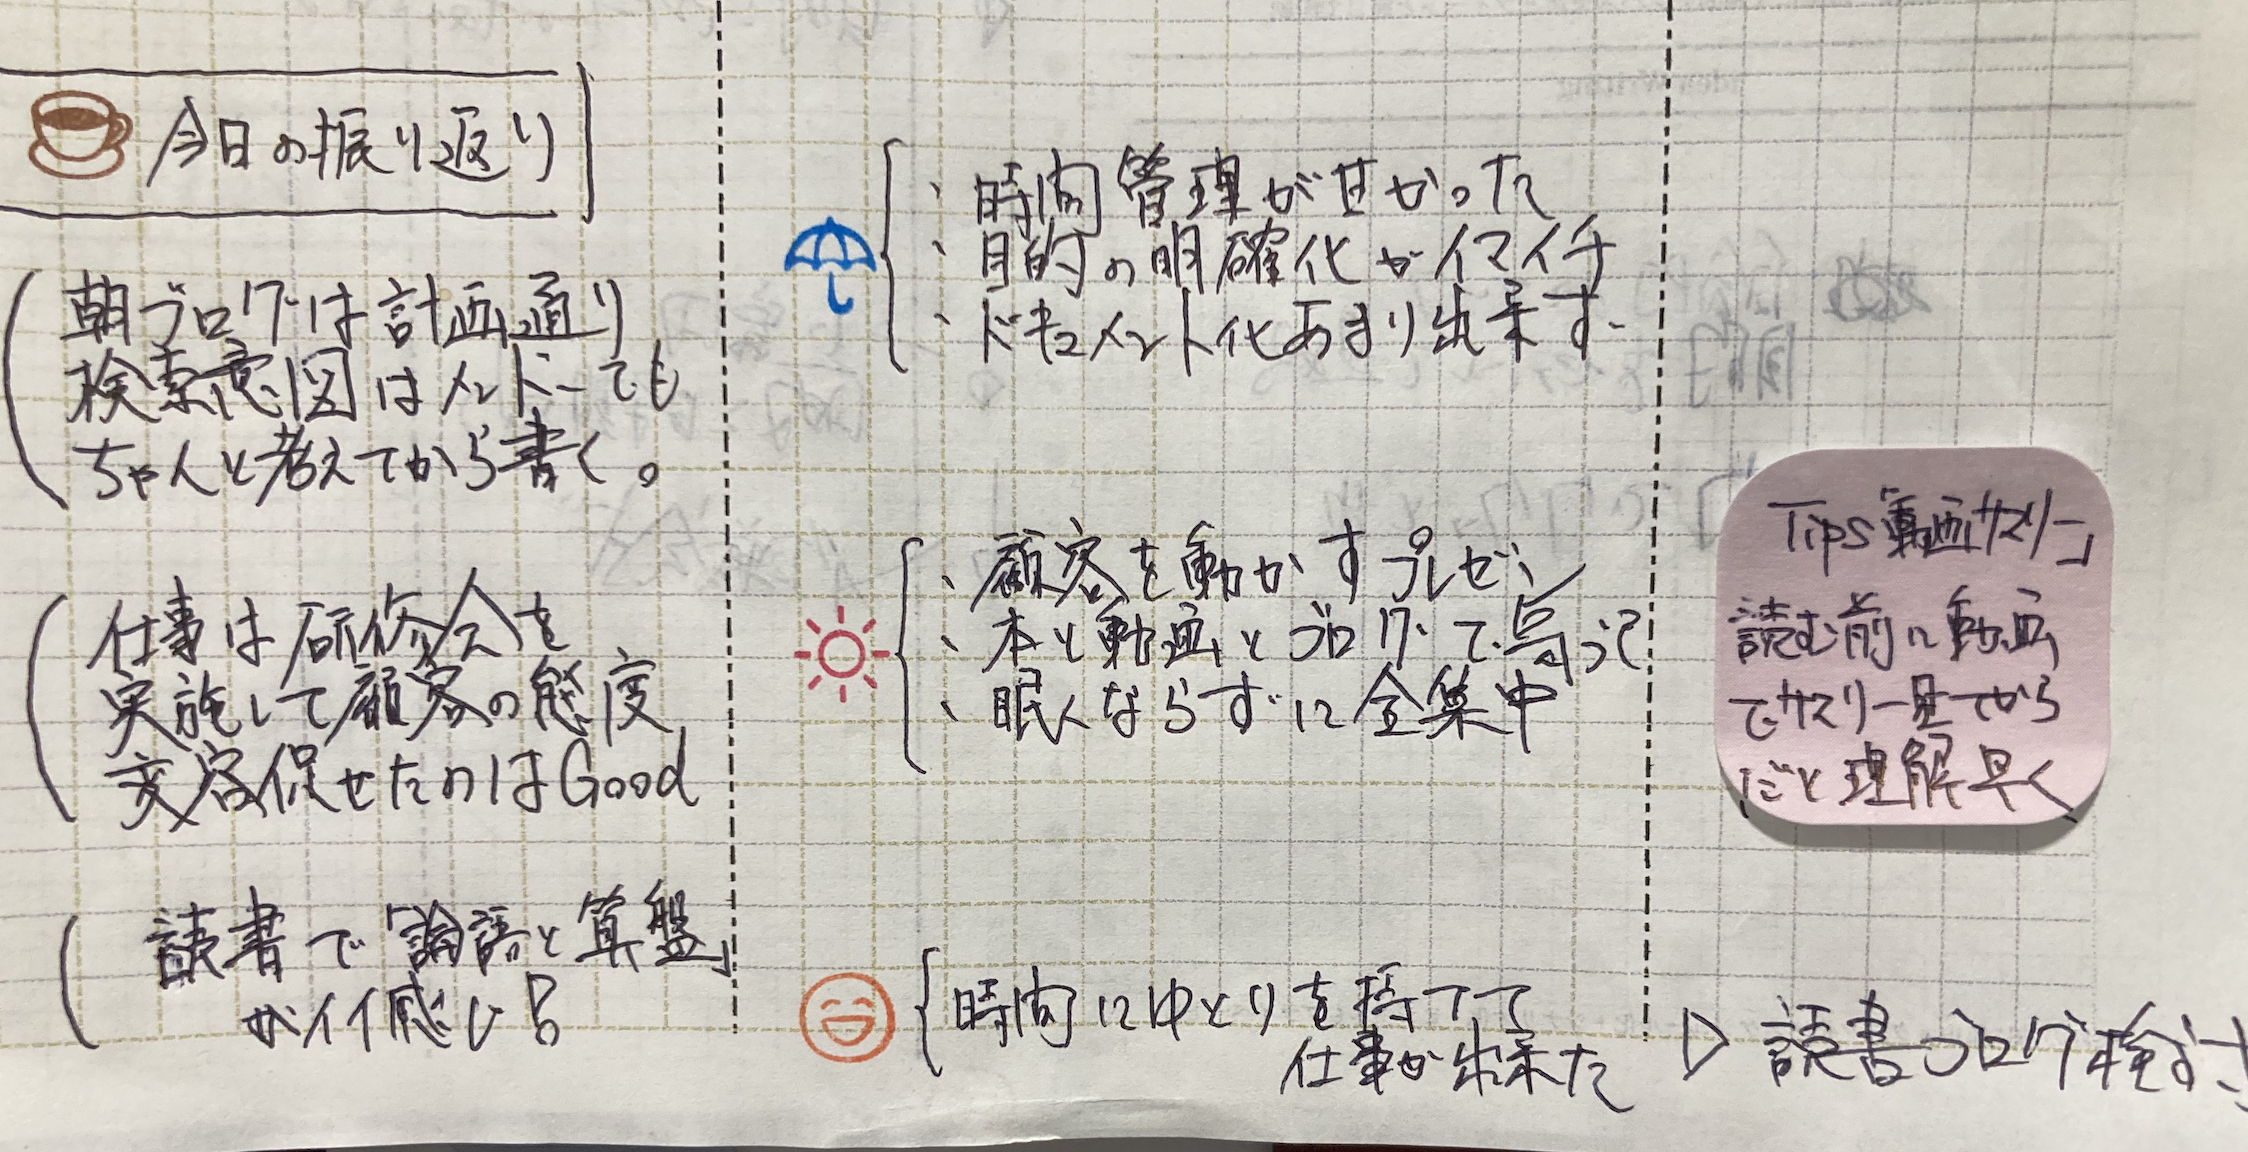 今日の振り返り
朝ブログは計画通り
検索意図はメンドーでも
ちゃんと考えてから書く。
仕事は研修会を
実施して顧客の態度
変容促せたのはGood
読書で「論語と算盤」
がイイ感じ!
、時間管理が甘かった
、目的の明確化がイマイチ
、ドキュメント化あまり出来ず
、顧客を動かすプレゼン
、本と動画とブログで
、眠くならずに全集中
時間にゆとりを持てて
仕事が出来た
Tips「動画サマリー」
読む前に動画
でサマリー見てから
だと理解早く
▷ 読書ブログ